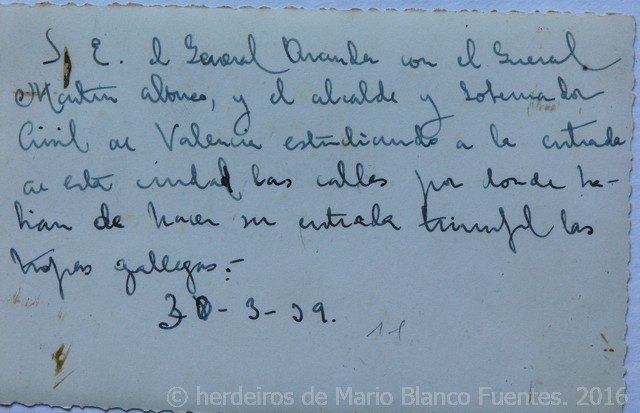 S. E. el General Aranda con el General
Martin Alonso, y el alcalde y Gobernador
Civil de Valencia estudiando a la entrada
de esta ciudad las calles por donde ha-
bian de hacer su entrada triunfal las
tropas gallegas:-
30 - 3 - 39.
11
© herdeiros de Mario Blanco Fuentes. 2016